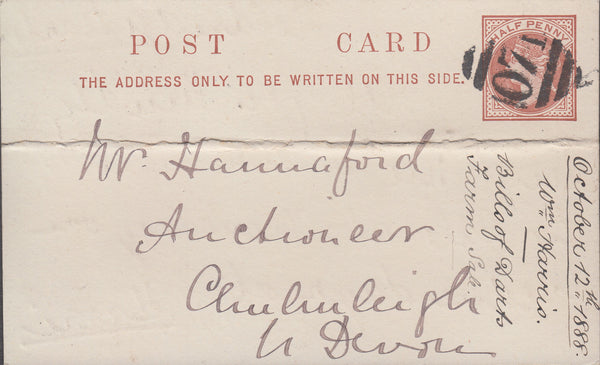 POST CARD
THE ADDRESS ONLY TO BE WRITTEN ON THIS SIDE.
HALF PENNY
07
Mr. Hannaford
Auctioneer
Chulmleigh
N Devon
October 12th 1888.
Wm Harris.
Bill of Darts
Farm Sale.